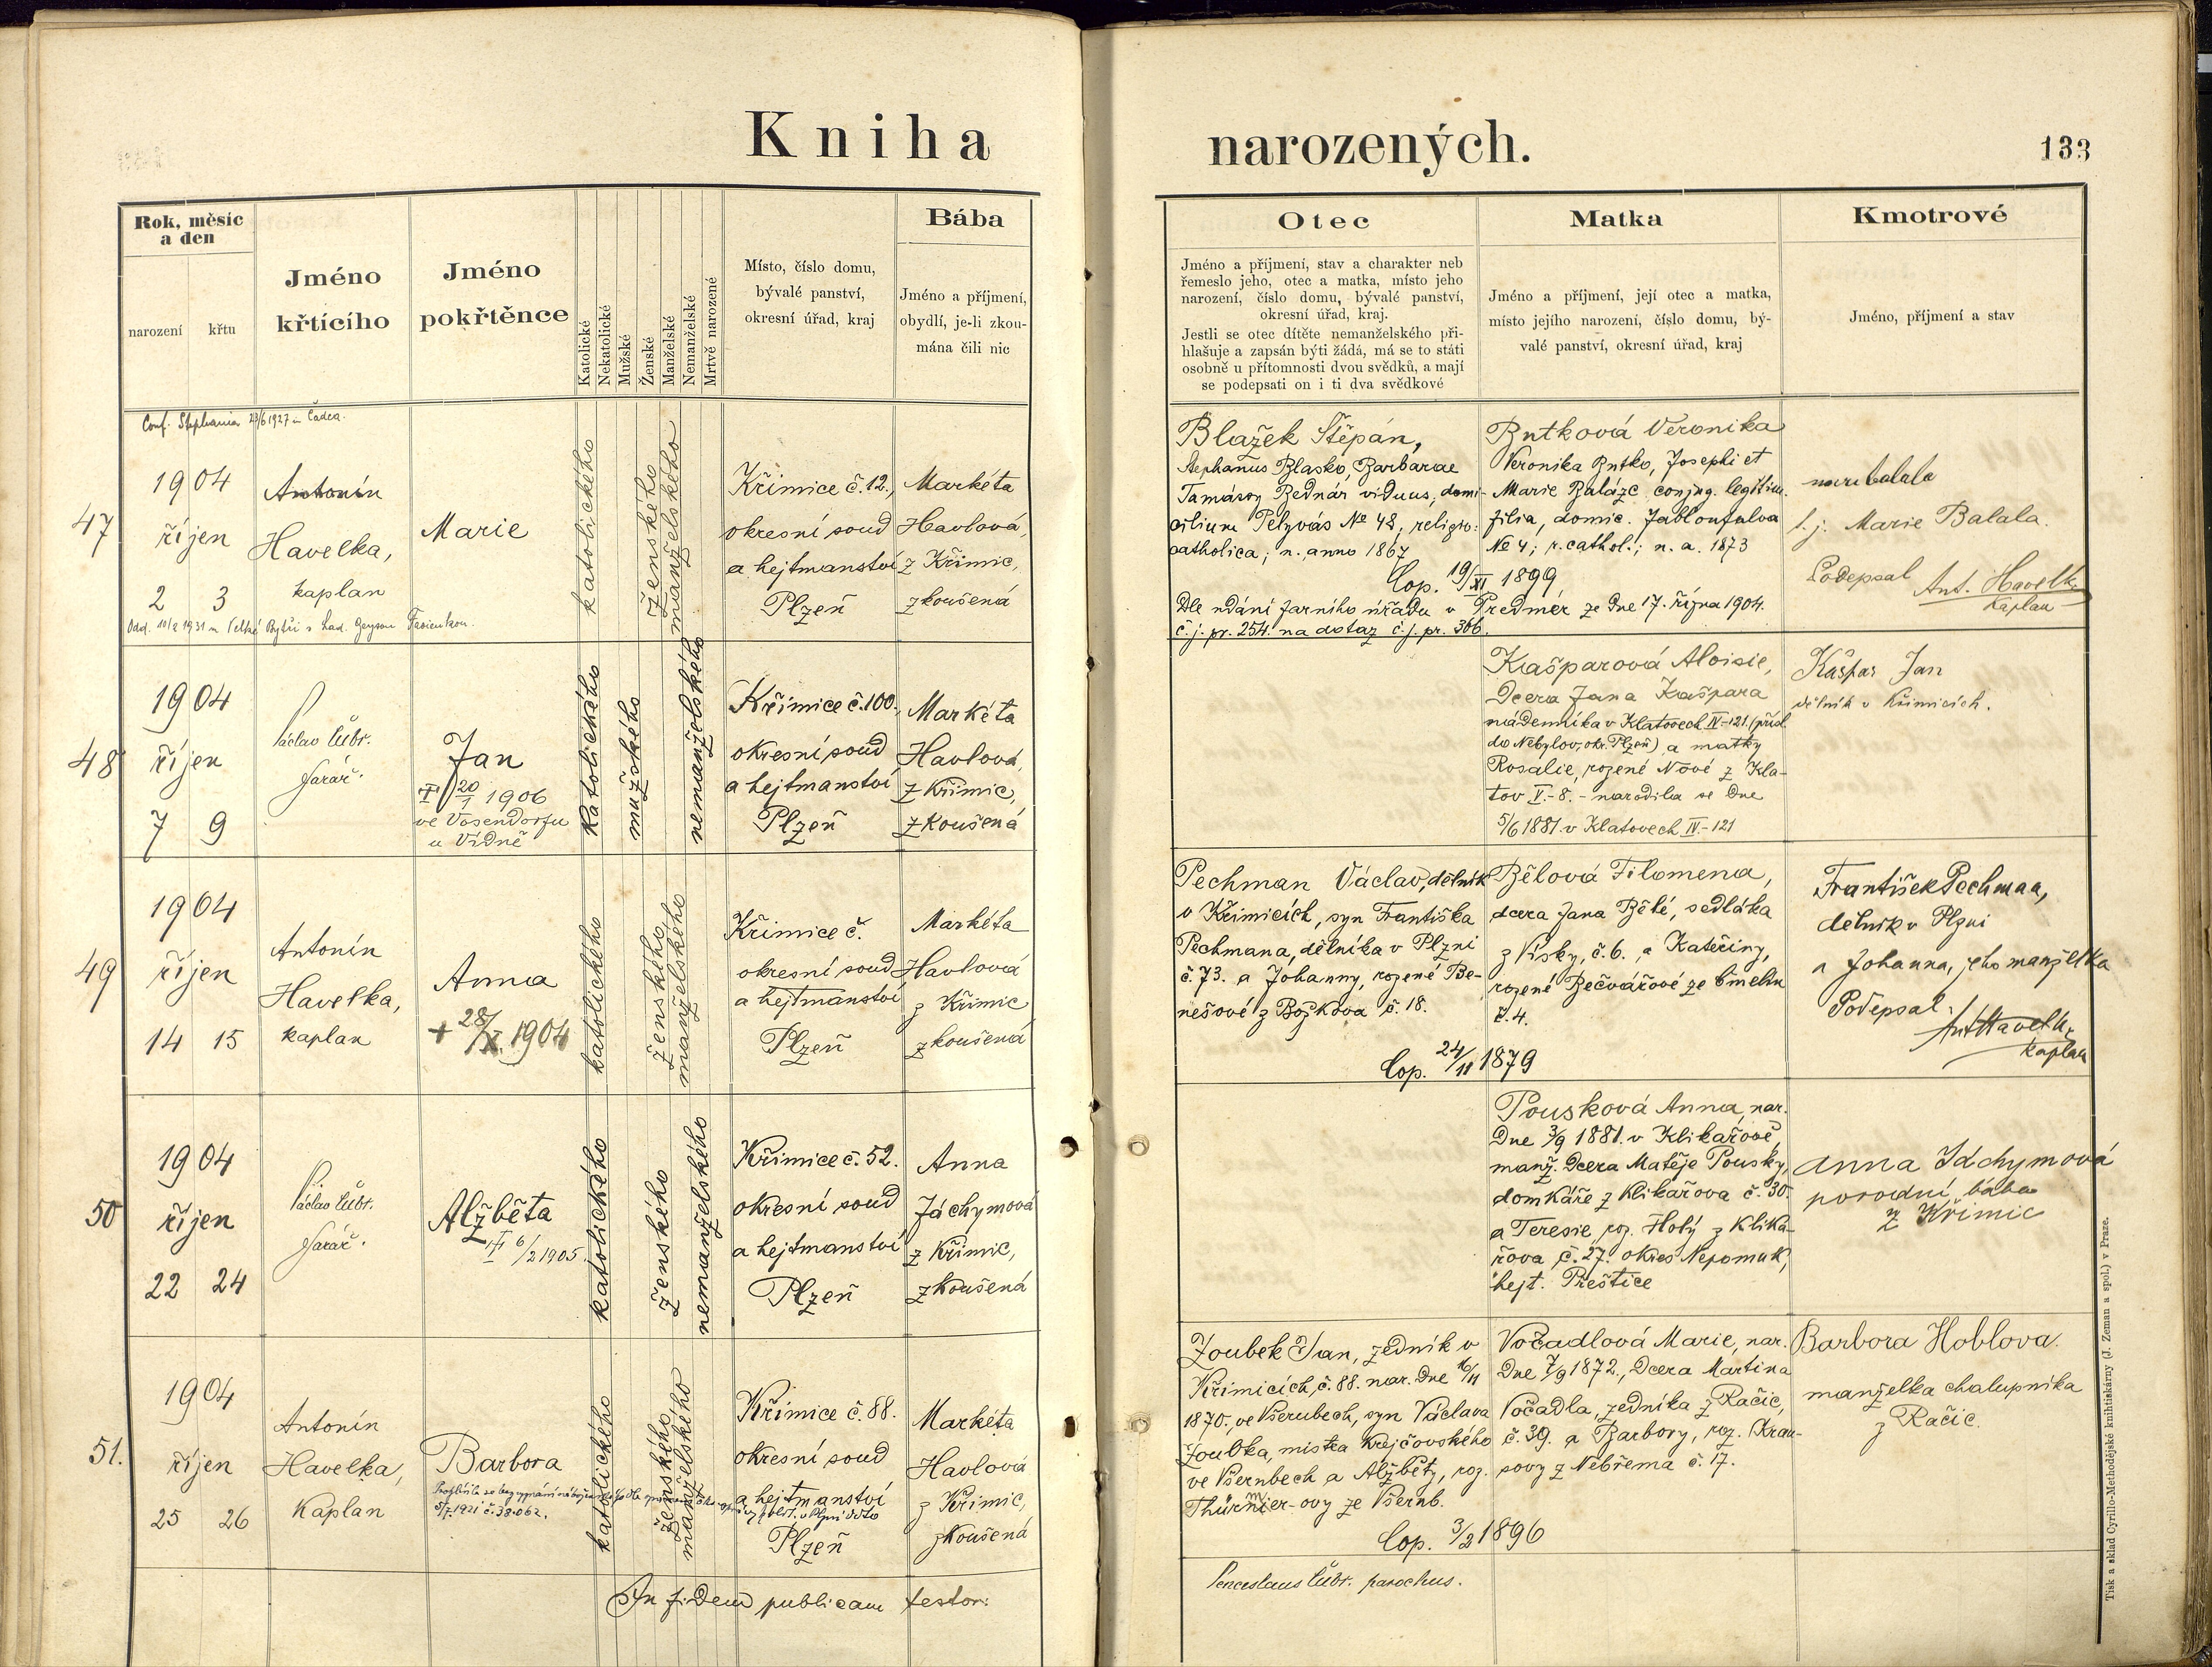 Kniha narozených.
133
Rok, měsíc
a den
narození
křtu
Jméno
křtícího
Jméno
pokřtěnce
Katolické
Nekatolické
Mužské
Ženské
Manželské
Nemanželské
Mrtvě narozené
Místo, číslo domu,
bývalé panství,
okresní úřad, kraj
Bába
Jméno a příjmení,
obydlí, je-li zkou-
mána čili nic
Otec
Jméno a příjmení, stav a charakter neb
řemeslo jeho, otec a matka, místo jeho
narození, číslo domu, bývalé panství,
okresní úřad, kraj.
Jestli se otec dítěte nemanželského při-
hlašuje a zapsán býti žádá, má se to státi
osobně u přítomnosti dvou svědků, a mají
se podepsati on i ti dva svědkové
Matka
Jméno a příjmení, její otec a matka,
místo jejího narození, číslo domu, bý-
valé panství, okresní úřad, kraj
Kmotrové
Jméno, příjmení a stav
Conf. Stephania 23/6 1927 in Čadca.
47
1904
říjen
2 3
Antonín
Havelka,
kaplan
Marie
katolického
ženského
manželského
Křimice č. 12.,
okresní soud
a hejtmanství
Plzeň
Markéta
Havlová,
z Křimic,
zkoušená
Blažek Štěpán,
Stephanus Blasko, Barbarae
Tamásoy Bednár viduus, domi-
cilium Pelyvás № 48, religio:
catholica; n. anno 1867
Butková Veronika
Veronika Butko, Josephi et
Marie Balázc conjug. legitim.
filia, domic. Jablonfalva
№ 4; r. cathol.; n. a. 1873
Cop. 19/XI 1899
Dle udání farního úřadu v Predmér ze dne 17. října 1904.
č. j. pr. 254. na dotaz č. j. pr. 306.
t. j. Marie Balala.
Podepsal Ant. Havelka
kaplan
Odd. 10/2 1931 in Velké Bytči s Lad.
48
1904
říjen
7 9
Václav Čubr.
farář.
Jan
† 20/1 1906
ve Vosendorfu
u Vídně
katolického
mužského
nemanželského
Křimice č. 100.,
okresní soud
a hejtmanství
Plzeň
Markéta
Havlová,
z Křimic,
zkoušená
Kašparová Aloisie,
dcera Jana Kašpara
nádenníka v Klatovech IV-121. (přísl.
do Nebylov, okr. Plzeň) a matky
Rosalie, rozené Nové z Kla-
tov V.-8. - narodila se dne
5/6 1881 v Klatovech IV.-121
Kašpar Jan
dělník v Křimicích.
49
1904
říjen
14 15
Antonín
Havelka,
kaplan
Anna
+ 28/X. 1904
katolického
ženského
manželského
Křimice č.
okresní soud
a hejtmanství
Plzeň
Markéta
Havlová
z Křimic
zkoušená
Pechman Václav, dělník
v Křimicích, syn Františka
Pechmana, dělníka v Plzni
č. 73. a Johanny, rozené Be-
nešové z Božkova č. 18.
Bělová Filomena,
dcera Jana Bělé, sedláka
z Vísky, č. 6., a Kateřiny,
rozené Bečvářové ze Čmelin
č. 4.
Cop. 24/11 1879
František Pechman,
dělník v Plzni
a Johanna, jeho manželka
Podepsal.
Ant Havelka
kaplan
50
1904
říjen
22 24
Václav Čubr.
farář.
Alžběta
† 6/2 1905.
katolického
ženského
nemanželského
Křimice č. 52.
okresní soud
a hejtmanství
Plzeň
Anna
Jáchymová
z Křimic,
zkoušená
Pousková Anna, nar.
dne 3/9 1881. v Klikařově,
manž. dcera Matěje Pousky,
domkáře z Klikařova č. 30.
a Teresie, roz. Holý z Klika-
řova č. 27. okres Nepomuk,
hejt. Přeštice
Anna Jáchymová
porodní bába
z Křimic
51.
1904
říjen
25 26
Antonín
Havelka,
kaplan
Barbora
5/7. 1921 č. 38.062.
katolického
ženského
manželského
Křimice č. 88.
okresní soud
a hejtmanství
Plzeň
Markéta
Havlová
z Křimic,
zkoušená
Zoubek Jan, zedník v
Křimicích, č. 88. nar. dne 16/11
1870., ve Všerubech, syn Václava
Zoubka, mistra krejčovského
ve Všerubech a Alžběty, roz.
Thürmer-ovy ze Všerub.
Vočadlová Marie, nar.
dne 7/9 1872., dcera Martina
Vočadla, zedníka z Račic,
č. 39. a Barbory, roz. Krau-
sovy z Nebřema č. 17.
Cop. 3/2 1896
Barbora Hoblova.
manželka chalupníka
z Račic.
In fidem publicam testor:
Venceslaus Čubr. parochus.
Tisk a sklad Cyrillo-Methodějské knihtiskárny (J. Zeman a spol.) v Praze.